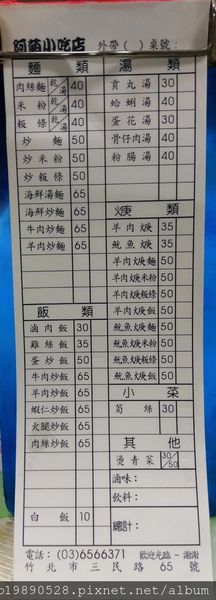 阿菊小吃店 外帶( )桌號:
麵類
肉絲麵 乾湯 40
米粉 乾湯 40
粄條 乾湯 40
炒麵 50
炒米粉 50
炒粄條 50
海鮮湯麵 65
海鮮炒麵 65
牛肉炒麵 65
羊肉炒麵 65
飯類
滷肉飯 30
雞絲飯 35
蛋炒飯 50
牛肉炒飯 65
羊肉炒飯 65
蝦仁炒飯 65
火腿炒飯 65
肉絲炒飯 65
白飯 10
湯類
貢丸湯 30
蛤蜊湯 40
蛋花湯 30
骨仔肉湯 40
粉腸湯 40
焿類
羊肉焿 35
魷魚焿 35
羊肉焿麵 50
羊肉焿米粉 50
羊肉焿粄條 50
羊肉焿飯 50
魷魚焿麵 50
魷魚焿米粉 50
魷魚焿粄條 50
魷魚焿飯 50
小菜
筍絲 30
其他
燙青菜 30/50
滷味:
飲料:
總計:
電話:(03)6566371 歡迎光臨-謝謝
竹北市三民路65號
o19890528.pixnet.net/album